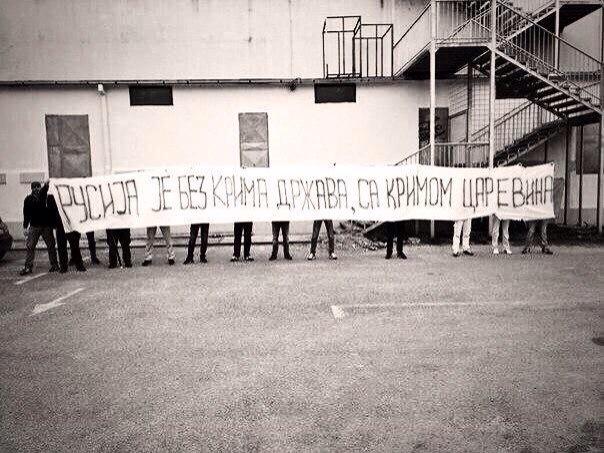 РУСИЈА ЈЕ БЕЗ КРИМА ДРЖАВА, СА КРИМОМ ЦАРЕВИНА